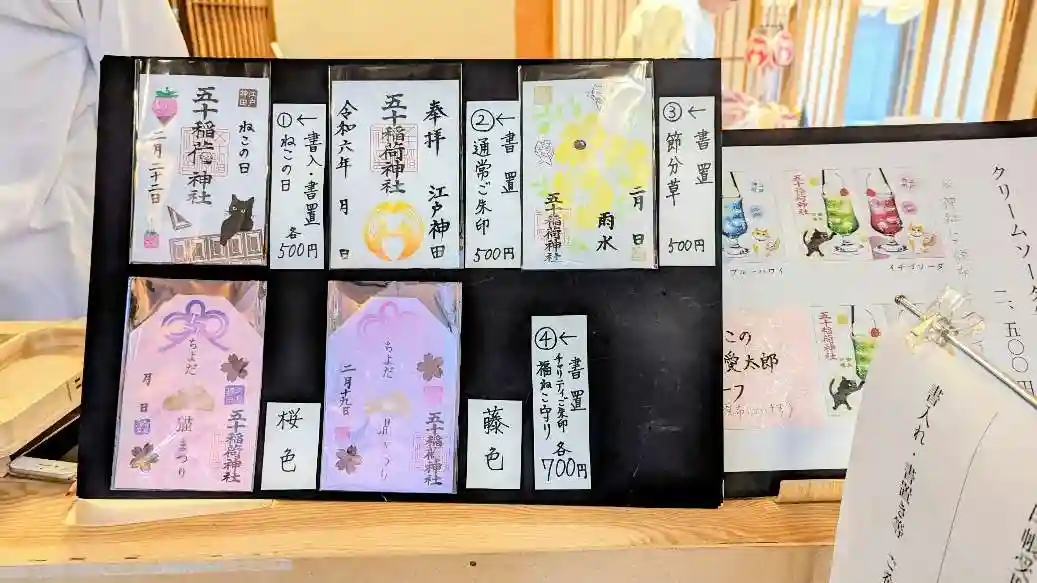 江戸
神田
五十稲荷神社
ねこの日
二月二十二日
①←
書入・書置
ねこの日
各
500円
奉拝
江戸神田
五十稲荷神社
令和六年
月
日
②←
書置
通常ご朱印
500円
二月
日
雨水
五十稲荷神社
③←
書置
節分草
500円
ちよだ
猫まつり
五十稲荷神社
月
日
桜色
ちよだ
五十稲荷神社
二月十九日
藤色
④←
書置
チャリティご朱印
福ねこ守り
各
700円
クリームソーダ
二、五〇〇円
五十稲荷神社
ブルーハワイ
イチゴソーダ
五十稲荷神社
この
愛太郎
書入れ・書置き等